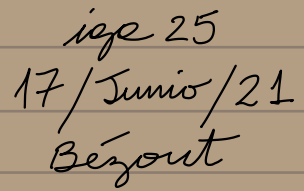 iga 25
17/Junio/21
Bézout